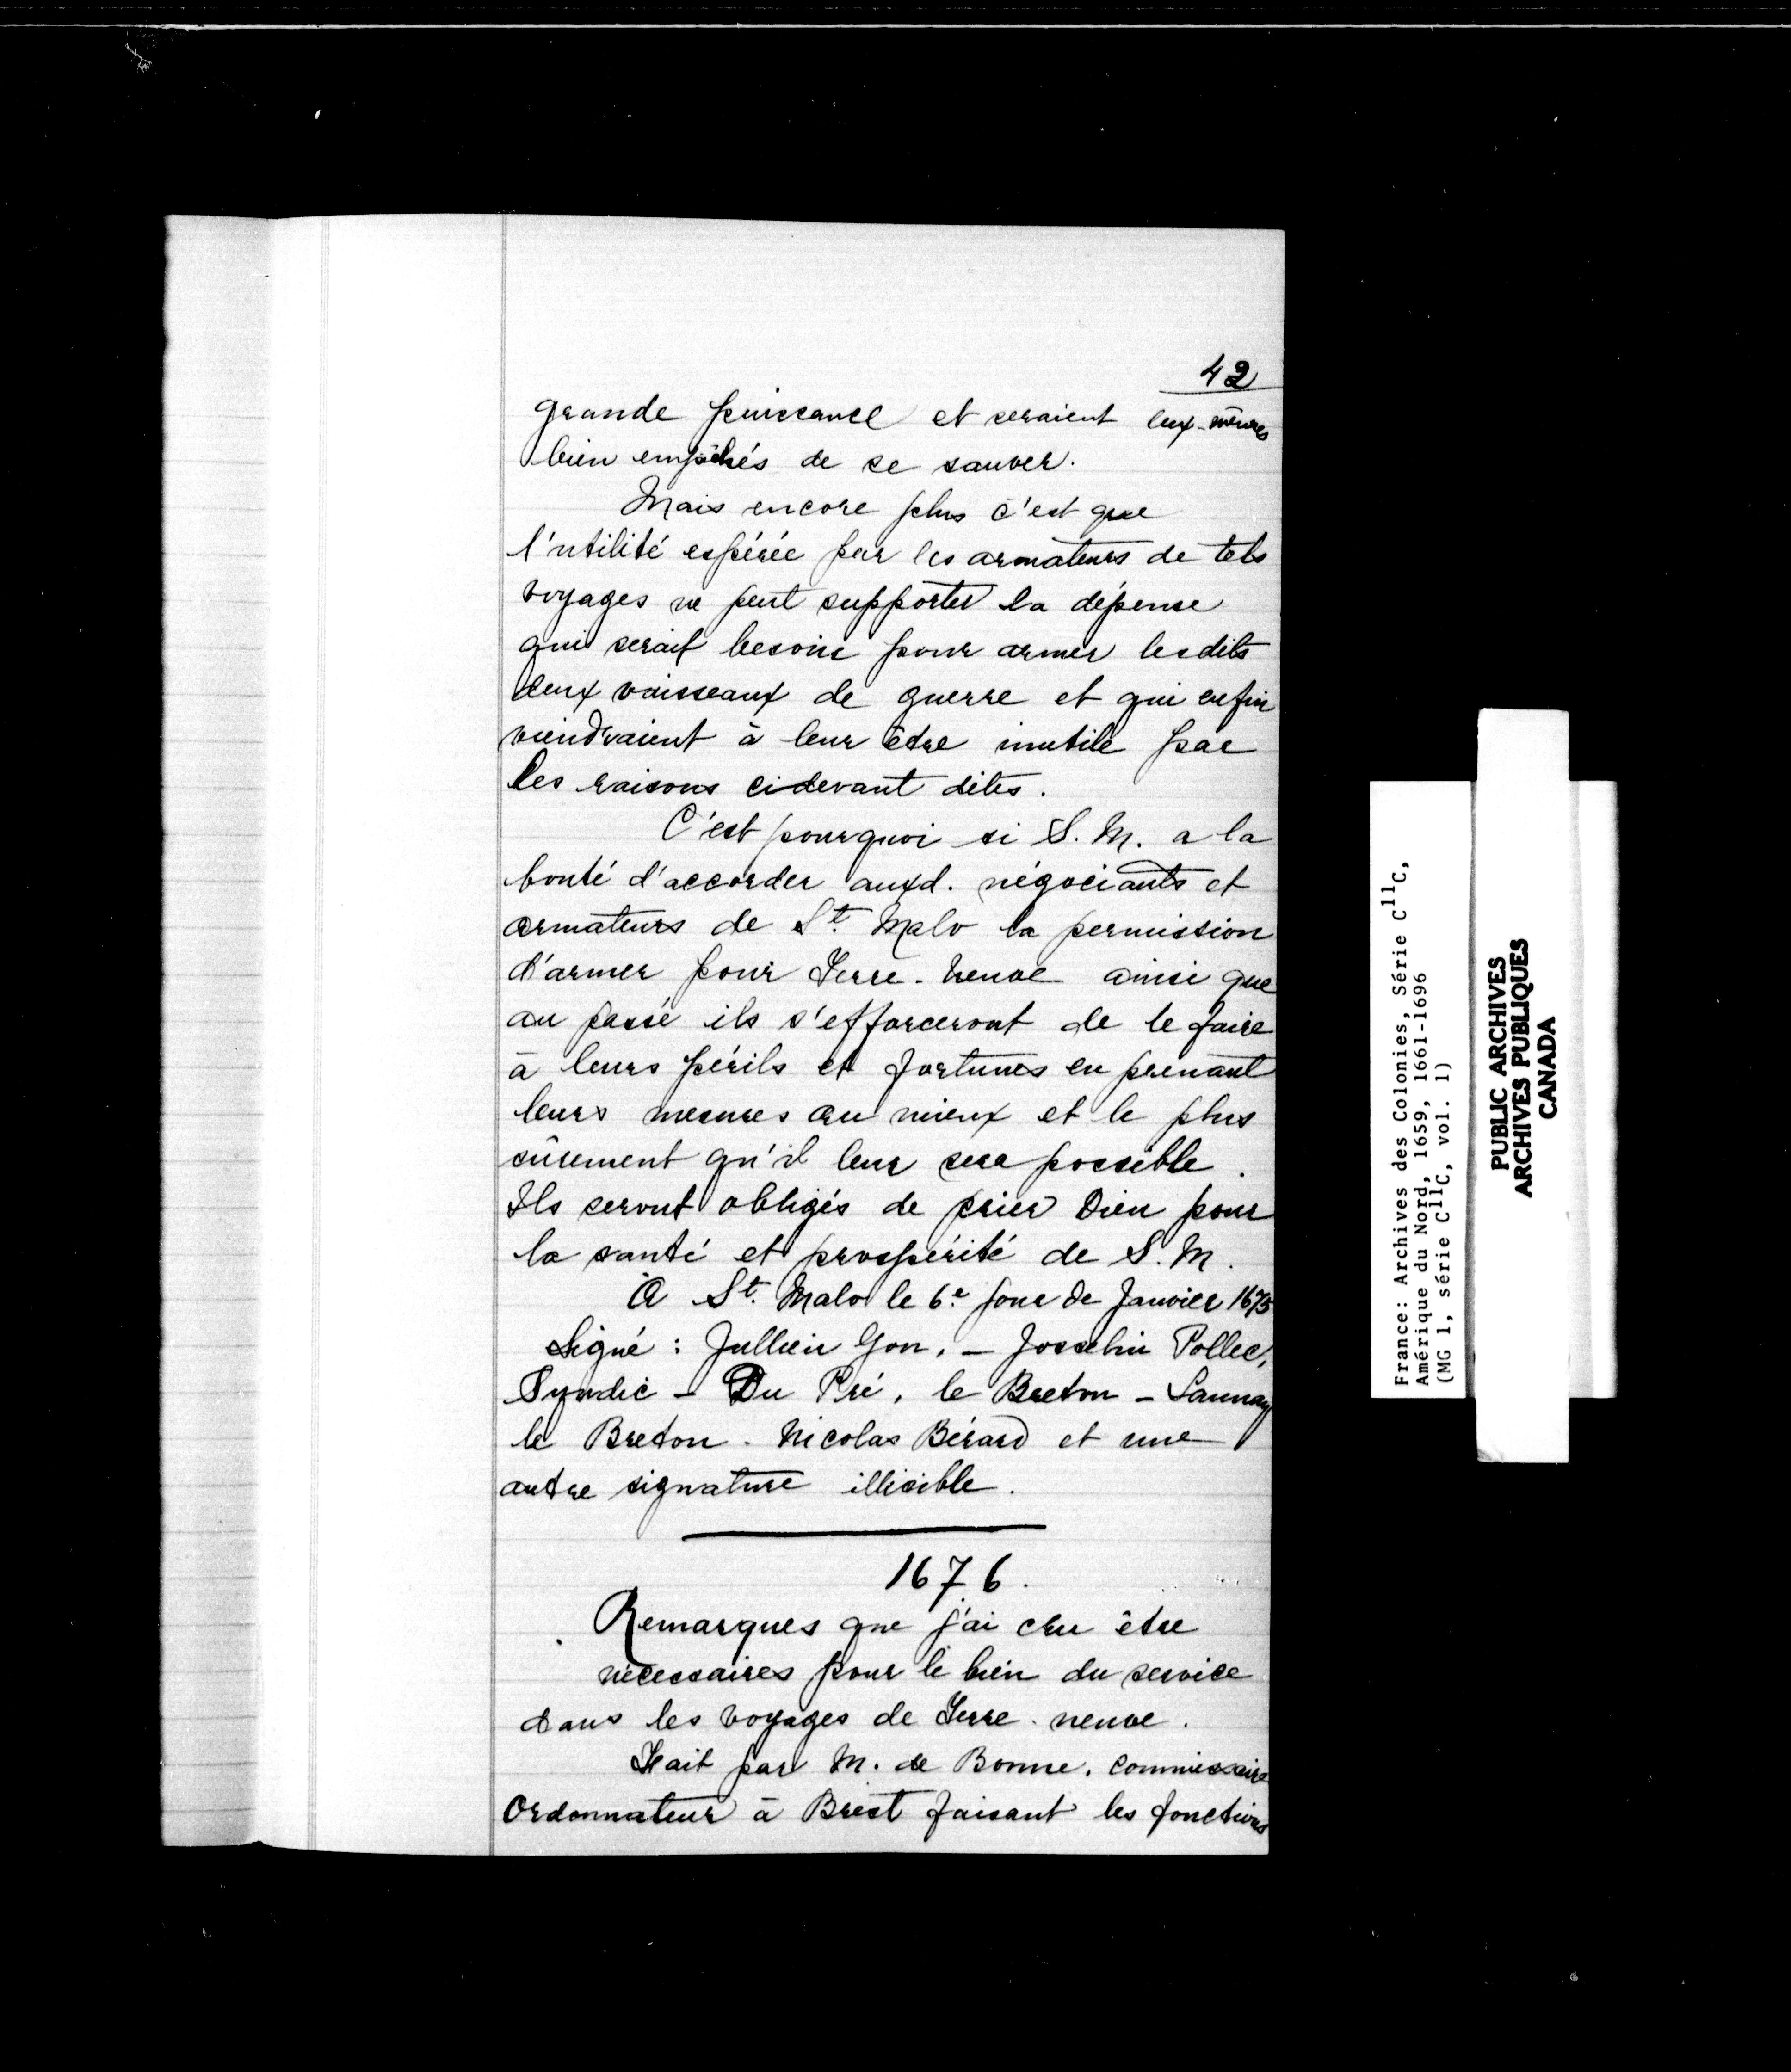 42
grande puissance et seraient eux-mêmes
bien empêchés de se sauver.
Mais encore plus c'est que
l'utilité espérée par les armateurs de tels
voyages ne peut supporter la dépense
qui serait besoin pour armer lesdits
deux vaisseaux de guerre et qui enfin
viendraient à leur être inutile par
les raisons ci devant dites.
C'est pourquoi si S. M. a la
bonté d'accorder auxd. négociants et
armateurs de St. Malo la permission
d'armer pour Terre-Neuve ainsi que
au passé ils s'efforceront de le faire
à leurs périls et fortunes en prenant
leurs mesures au mieux et le plus
sûrement qu'il leur sera possible.
Ils seront obligés de prier Dieu pour
la santé et prospérité de S. M.
A St. Malo le 6e jour de Janvier 1675
Signé : Jullien Gon. - Josselin Pollec,
Syndic - Du Pré, le Breton - Launay
le Breton. Nicolas Bérard et une
autre signature illisible.
1676.
Remarques que j'ai cru être
nécessaires pour le bien du service
dans les voyages de Terre-neuve.
Fait par M. de Bonne, Commissaire
Ordonnateur à Brest faisant les fonctions
France: Archives des Colonies, Série C11C,
Amérique du Nord, 1659, 1661-1696
(MG 1, série C11C, vol. 1)
PUBLIC ARCHIVES
ARCHIVES PUBLIQUES
CANADA